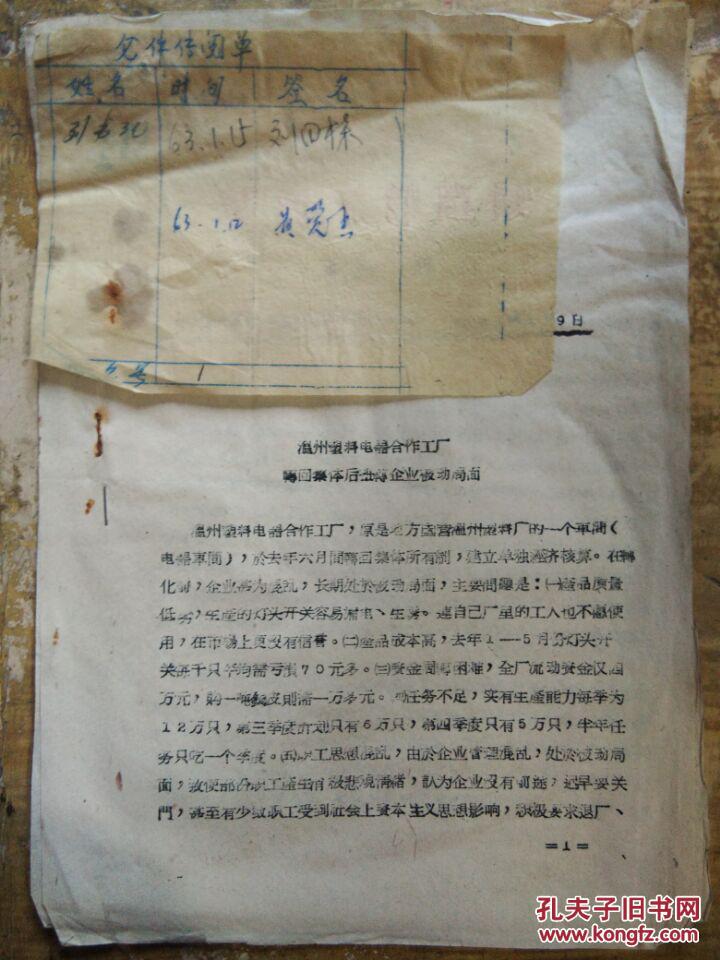 文件传阅单
姓名 时间 签名
63.1.15 刘回林
63.1.12
1
9日
温州塑料电器合作工厂
轉回集体后扭轉企业被动局面
温州塑料电器合作工厂，原是地方国营温州塑料厂的一个車間（
电器車間），於去年六月間轉回集体所有制，建立单独经济核算。在轉
化时，企业甚为混乱，长期处於被动局面，主要問題是：㈠産品质量
低劣，生産的灯头开关容易漏电、生銹。連自己厂里的工人也不願使
用，在市場上更没有信誉。㈡産品成本高，去年1—5月份灯头开
关每千只平均需亏損70元多。㈢資金周轉困难，全厂流动資金仅四
万元，購一噸 則需一万多元。㈣任务不足，实有生産能力每季为
12万只，第三季度計划只有6万只，第四季度只有5万只，半年任
务只吃一个季度。㈤职工思想混乱，由於企业管理混乱，处於被动局
面，致使部份职工産生消极悲观情緒，認为企业没有前途，迟早要关
門，甚至有少数职工受到社会上資本主义思想影响，积极要求退厂、
=1=
孔夫子旧书网
www.kongfz.com